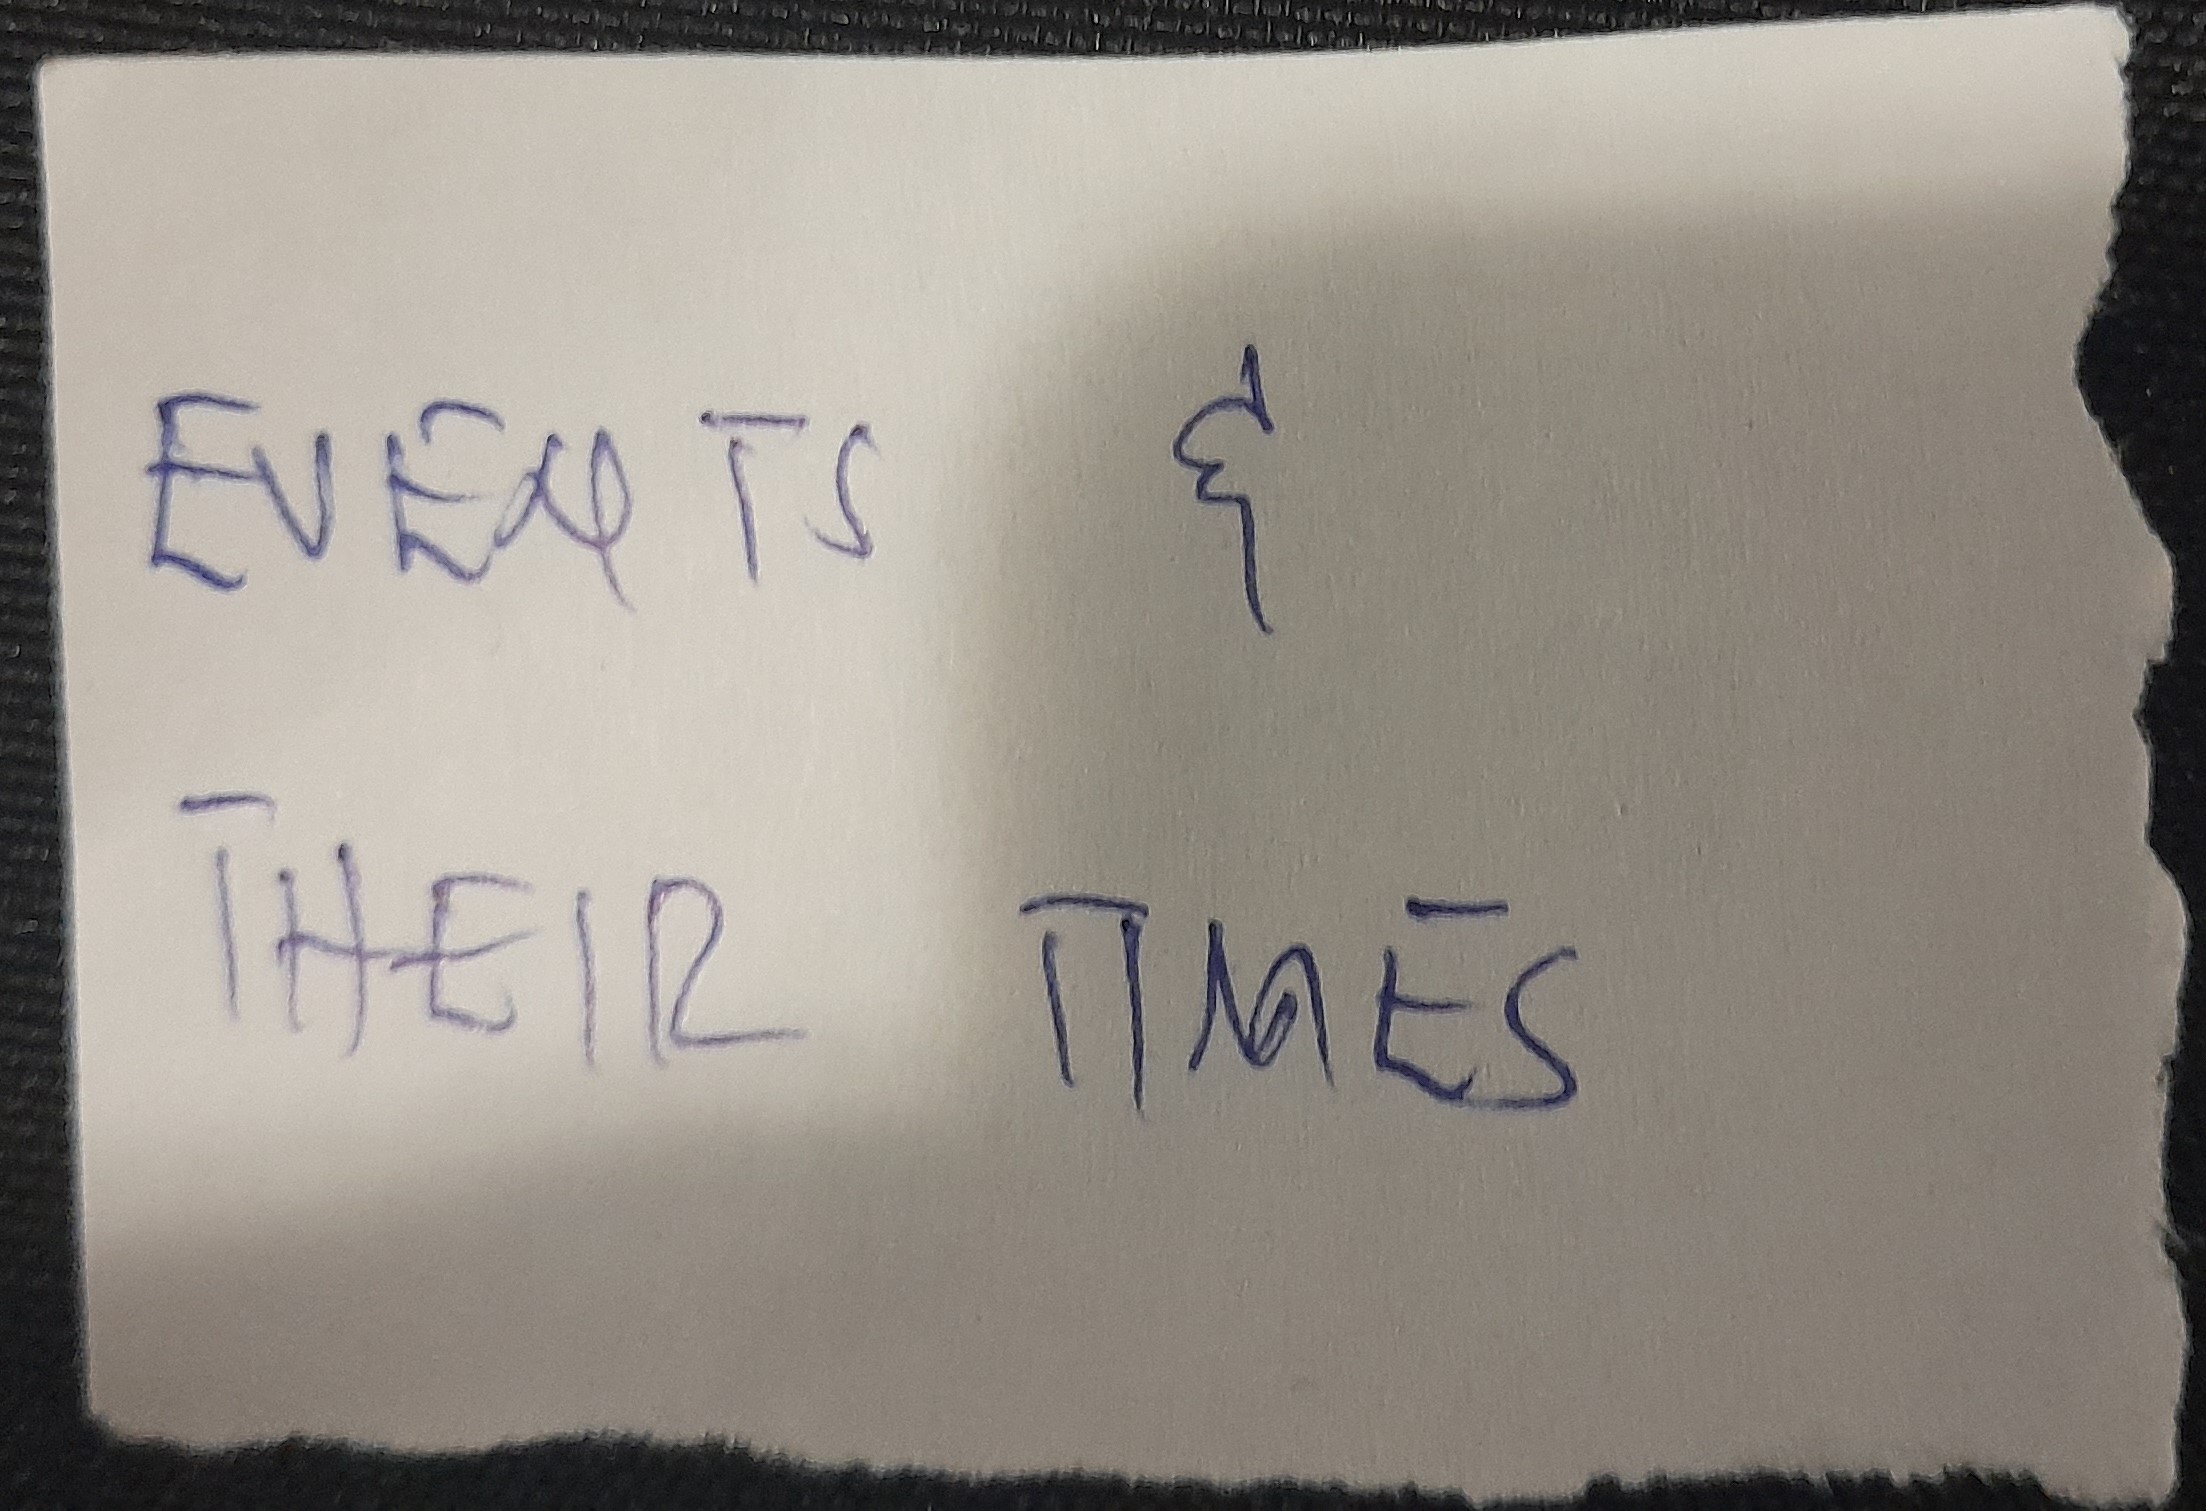 EVENTS &
THEIR TIMES